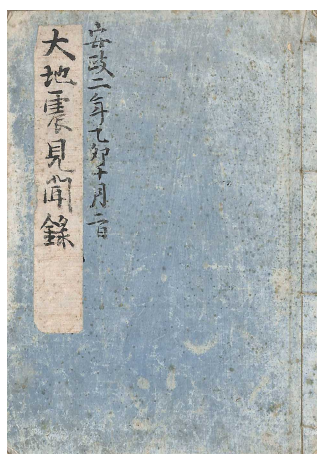 安政二年乙卯十月二日
大地震見聞録